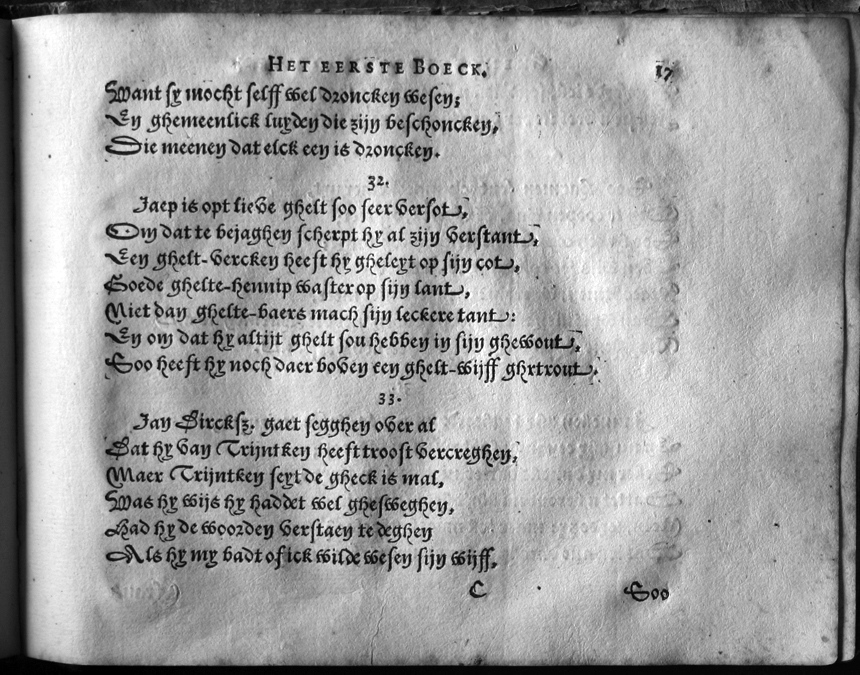 HET EERSTE BOECK. 17
Want sy mocht selff wel droncken wesen;
En ghemeenlick luyden die zijn beschoncken,
Die meenen dat elck een is droncken.
32.
Jaep is opt lieve ghelt soo seer versot,
Om dat te bejaghen scherpt hy al zijn verstant,
Een ghelt-vercken heeft hy gheleyt op sijn cot,
Goede ghelte-hennip waster op sijn lant,
Niet dan ghelte-baers mach sijn leckere tant:
En om dat hy altijt ghelt sou hebben in sijn ghewout,
Soo heeft hy noch daer boven een ghelt-wijff ghrtrout.
33.
Jan Dircksz. gaet segghen over al
Dat hy van Trijntken heeft troost vercreghen,
Maer Trijntken seyt de gheck is mal,
Was hy wijs hy haddet wel ghesweghen,
Had hy de woorden verstaen te deghen
Als hy my badt of ick wilde wesen sijn wijff,
C Soo